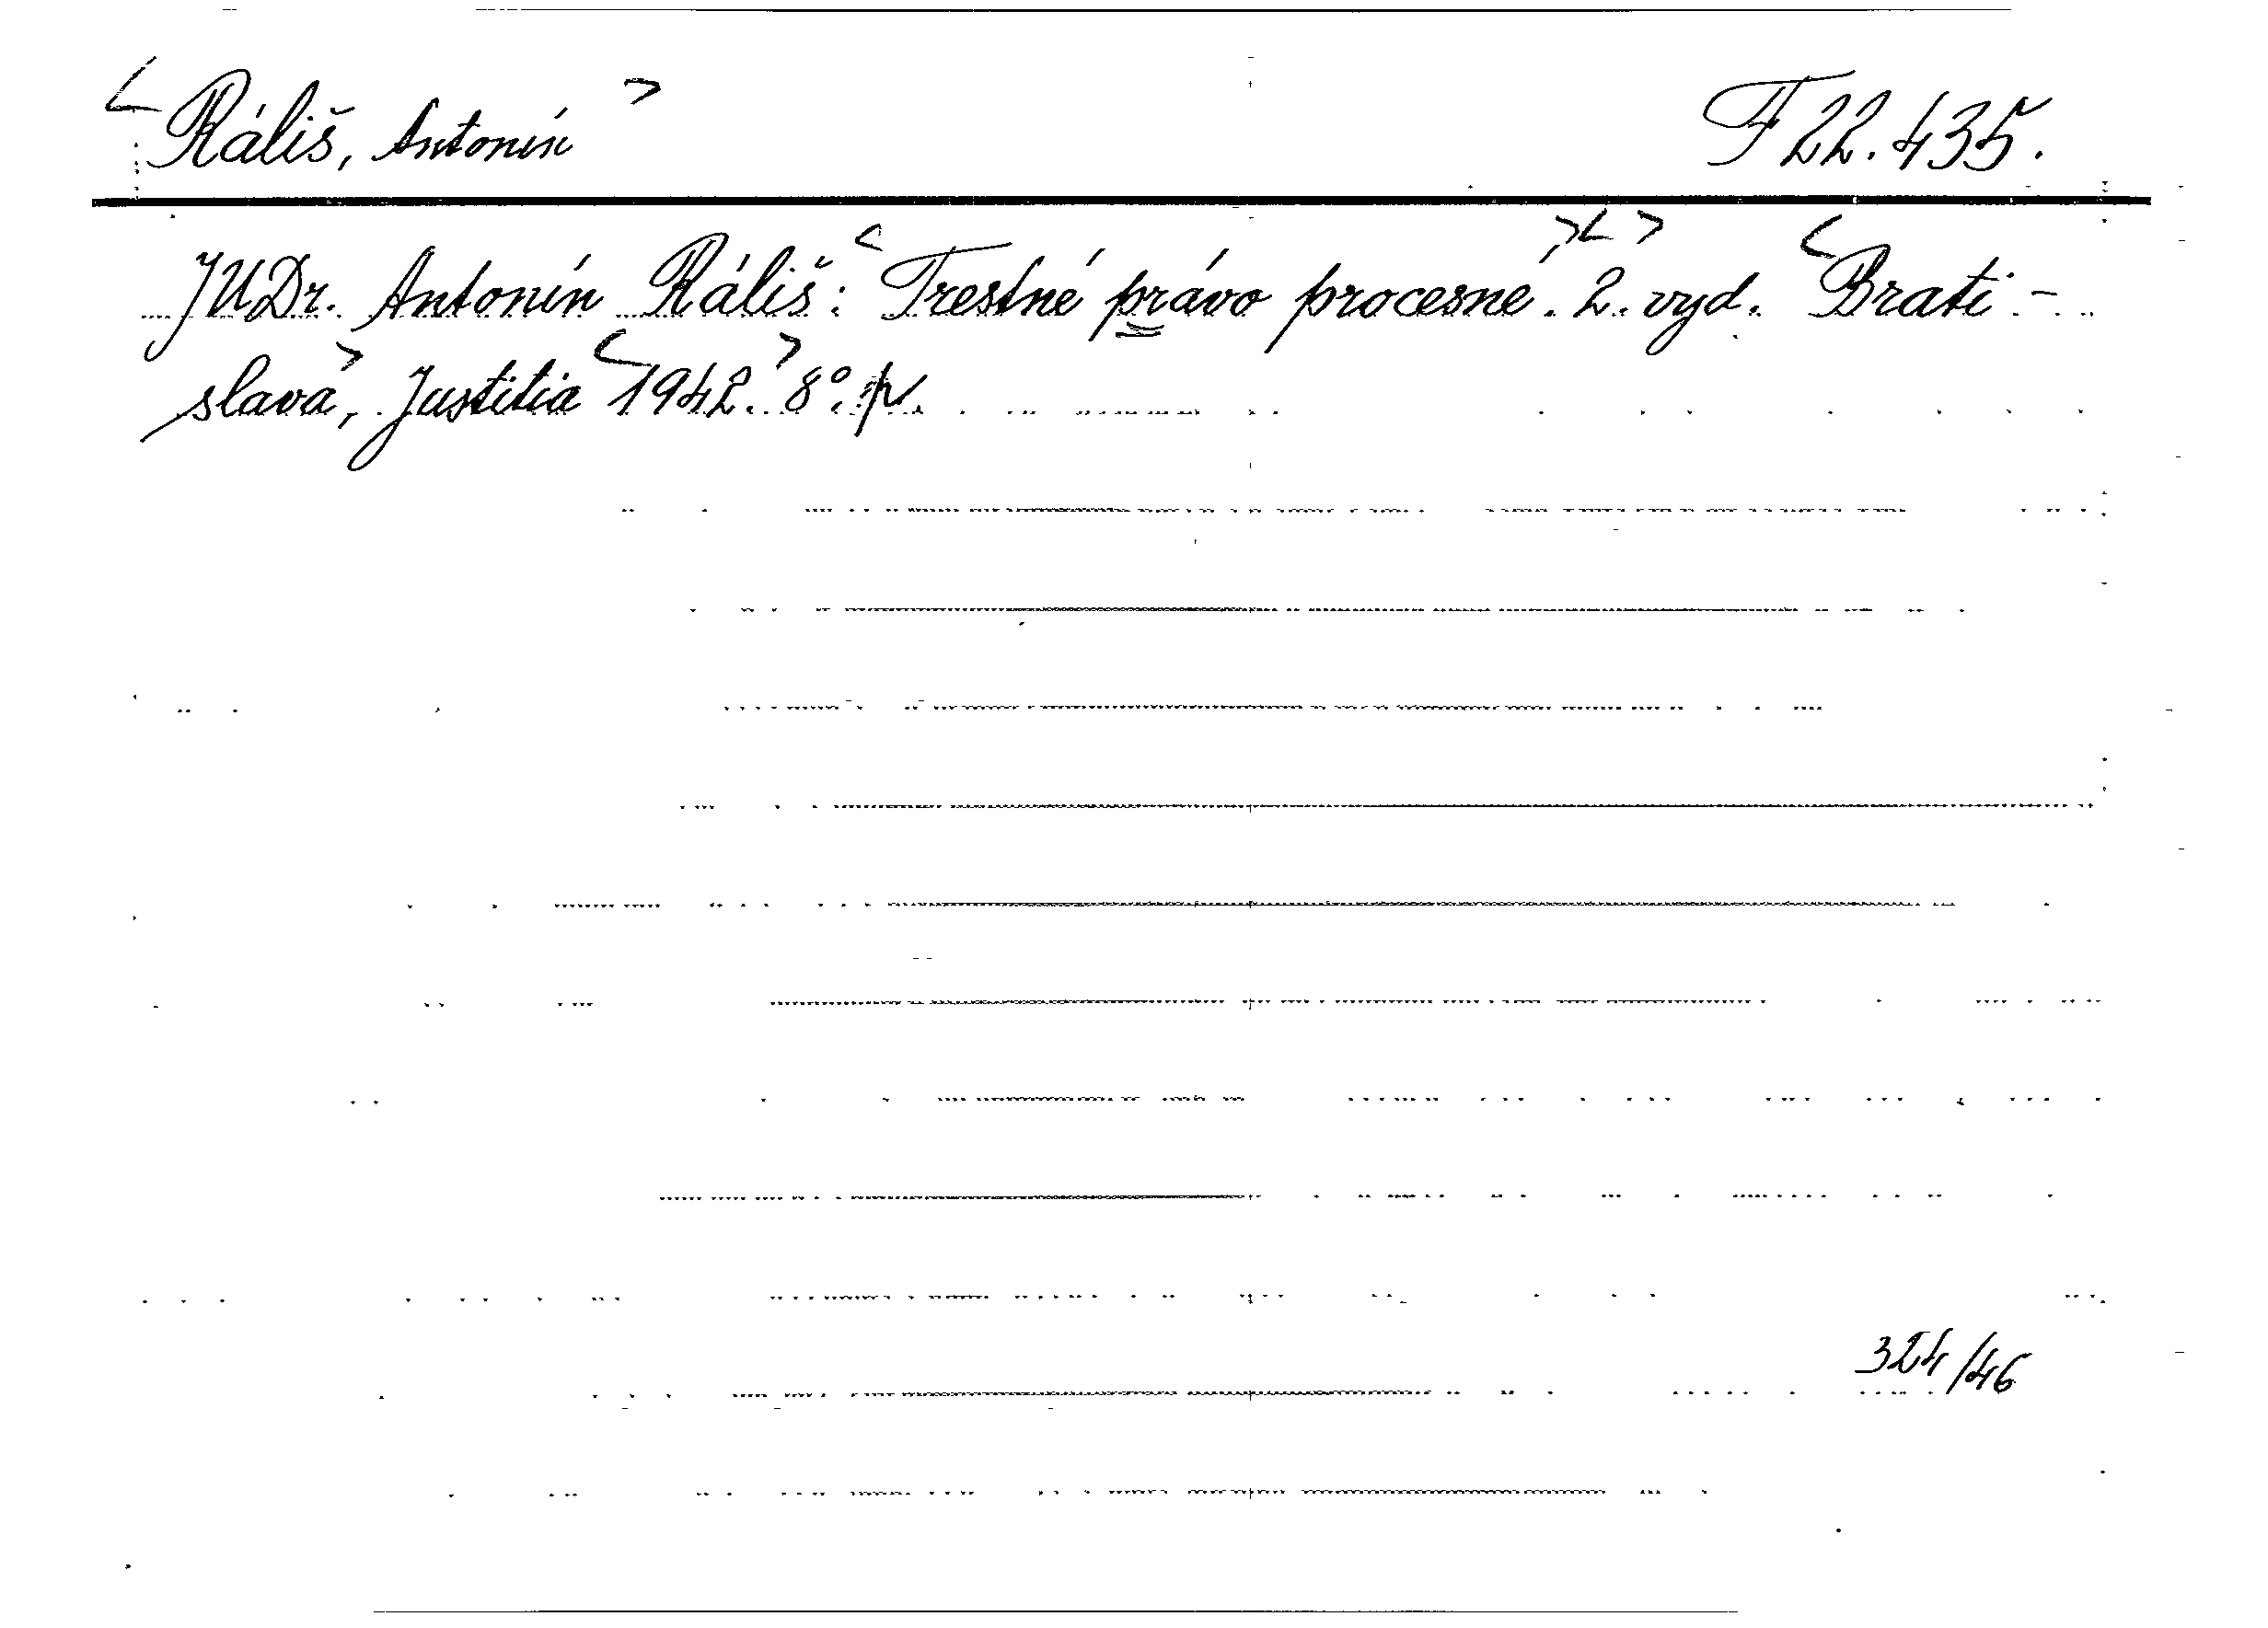 <Ráliš, Antonín> F 22.435.
JUDr. Antonín Ráliš: <Trestné právo procesné.><2. vyd.> <Brati-
slava>, Justitia <1942.> 8°.
324/46